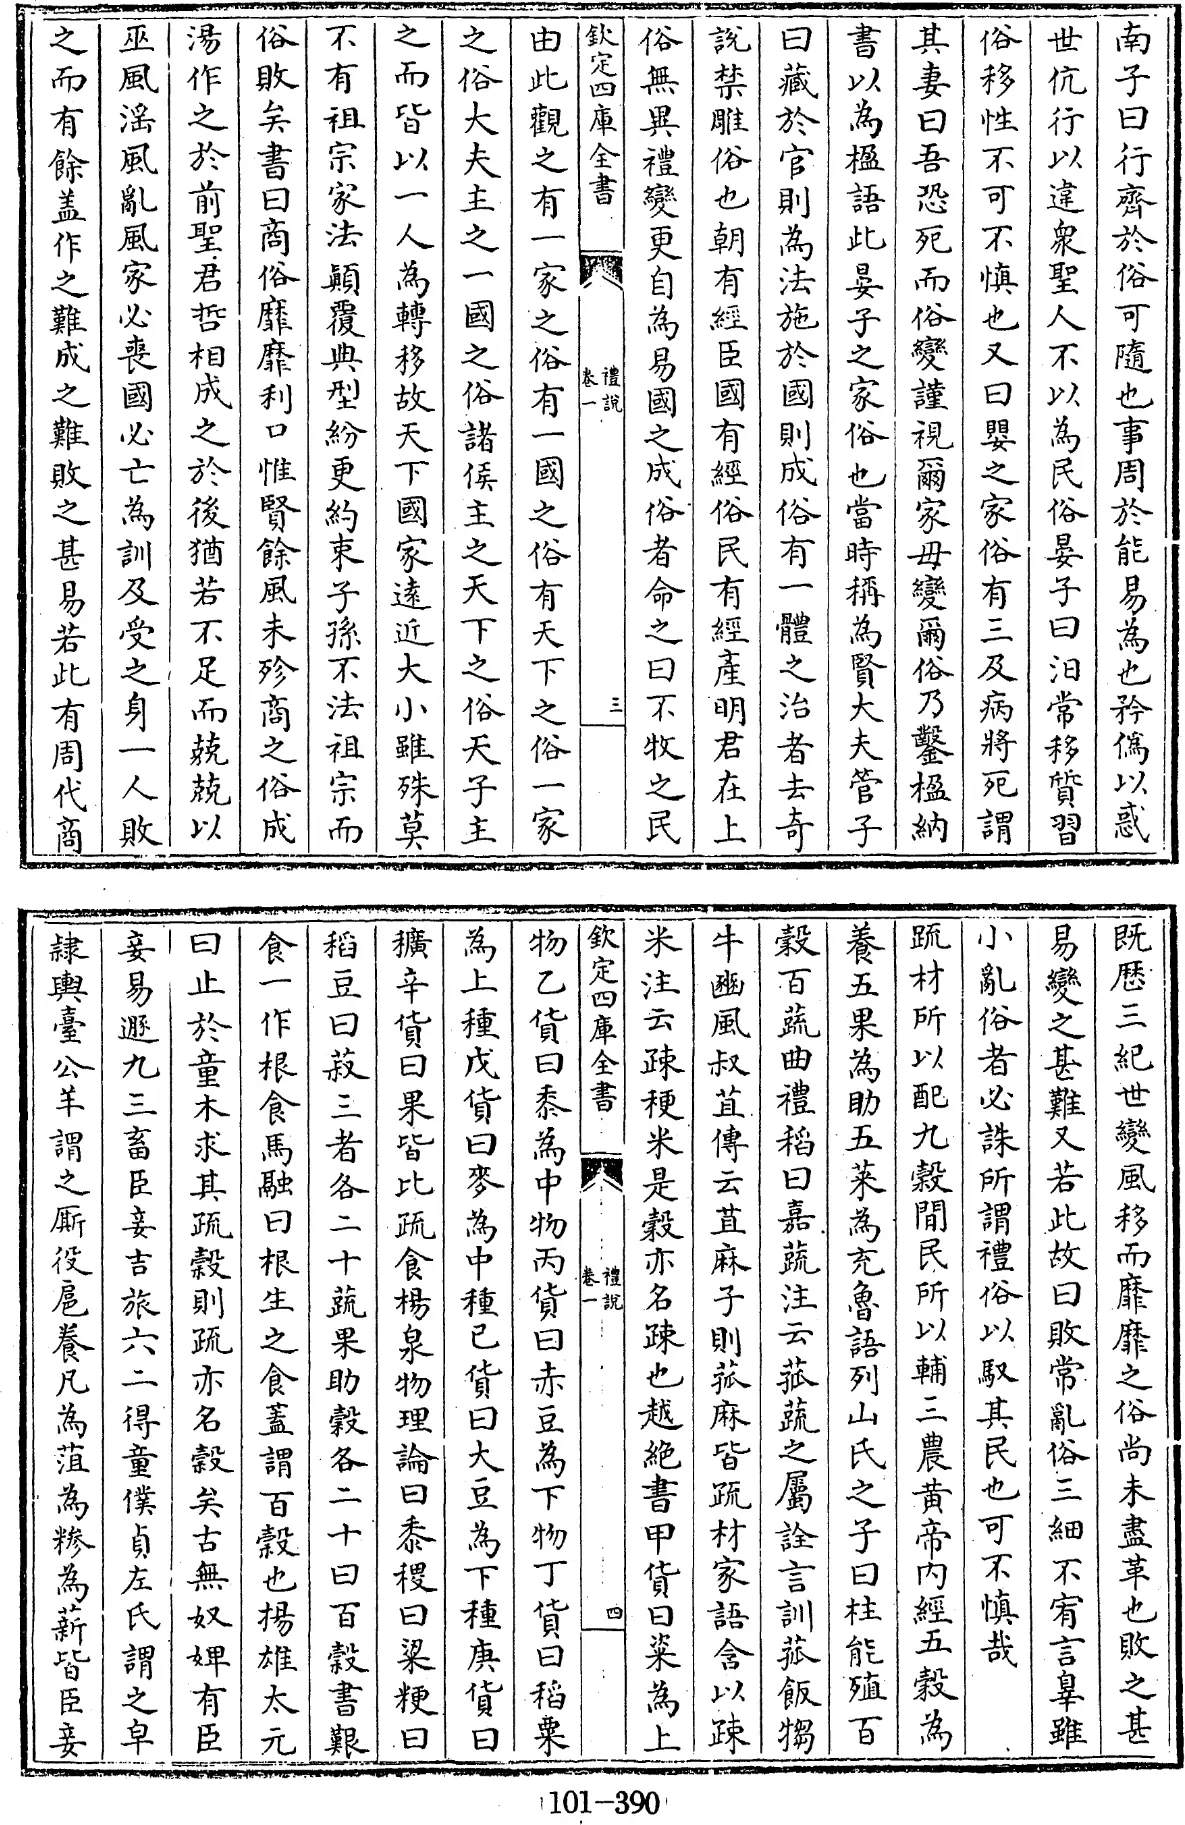 南子曰行齊於俗可隨也事周於能易為也矜僞以惑
世伉行以違衆聖人不以為民俗晏子曰汨常移質習
俗移性不可不慎也又曰嬰之家俗有三及病將死謂
其妻曰吾恐死而俗變謹視爾家毋變爾俗乃鑿楹納
書以為楹語此晏子之家俗也當時稱為賢大夫管子
曰藏於官則為法施於國則成俗有一體之治者去奇
說禁雕俗也朝有經臣國有經俗民有經產明君在上
俗無異禮變更自為易國之成俗者命之曰不牧之民
欽定四庫全書
禮說
卷一
三
由此觀之有一家之俗有一國之俗有天下之俗一家
之俗大夫主之一國之俗諸侯主之天下之俗天子主
之而皆以一人為轉移故天下國家遠近大小雖殊莫
不有祖宗家法顛覆典型紛更約束子孫不法祖宗而
俗敗矣書曰商俗靡靡利口惟賢餘風未殄商之俗成
湯作之於前聖君哲相成之於後猶若不足而兢兢以
巫風滛風亂風家必喪國必亡為訓及受之身一人敗
之而有餘盖作之難成之難敗之甚易若此有周代商
既歴三紀世變風移而靡靡之俗尚未盡革也敗之甚
易變之甚難又若此故曰敗常亂俗三細不宥言辠雖
小亂俗者必誅所謂禮俗以馭其民也可不慎哉
疏材所以配九穀閒民所以輔三農黄帝内經五穀為
養五果為助五菜為充魯語列山氏之子曰柱能殖百
穀百蔬曲禮稻曰嘉蔬注云菰蔬之屬詮言訓菰飯犓
牛豳風叔苴傳云苴麻子則菰麻皆疏材家語含以疎
米注云疎稉米是穀亦名疎也越絶書甲貨曰粢為上
欽定四庫全書
禮說
卷一
四
物乙貨曰黍為中物丙貨曰赤豆為下物丁貨曰稻粟
為上種戊貨曰麥為中種己貨曰大豆為下種庚貨曰
穬辛貨曰果皆比疏食楊泉物理論曰黍稷曰粱粳曰
稻豆曰菽三者各二十蔬果助穀各二十曰百穀書艱
食一作根食馬融曰根生之食蓋謂百穀也揚雄太元
曰止於童木求其疏穀則疏亦名穀矣古無奴婢有臣
妾易遯九三畜臣妾吉旅六二得童僕貞左氏謂之皁
隷輿臺公羊謂之厮役扈養凡為菹為糝為薪皆臣妾
101-390